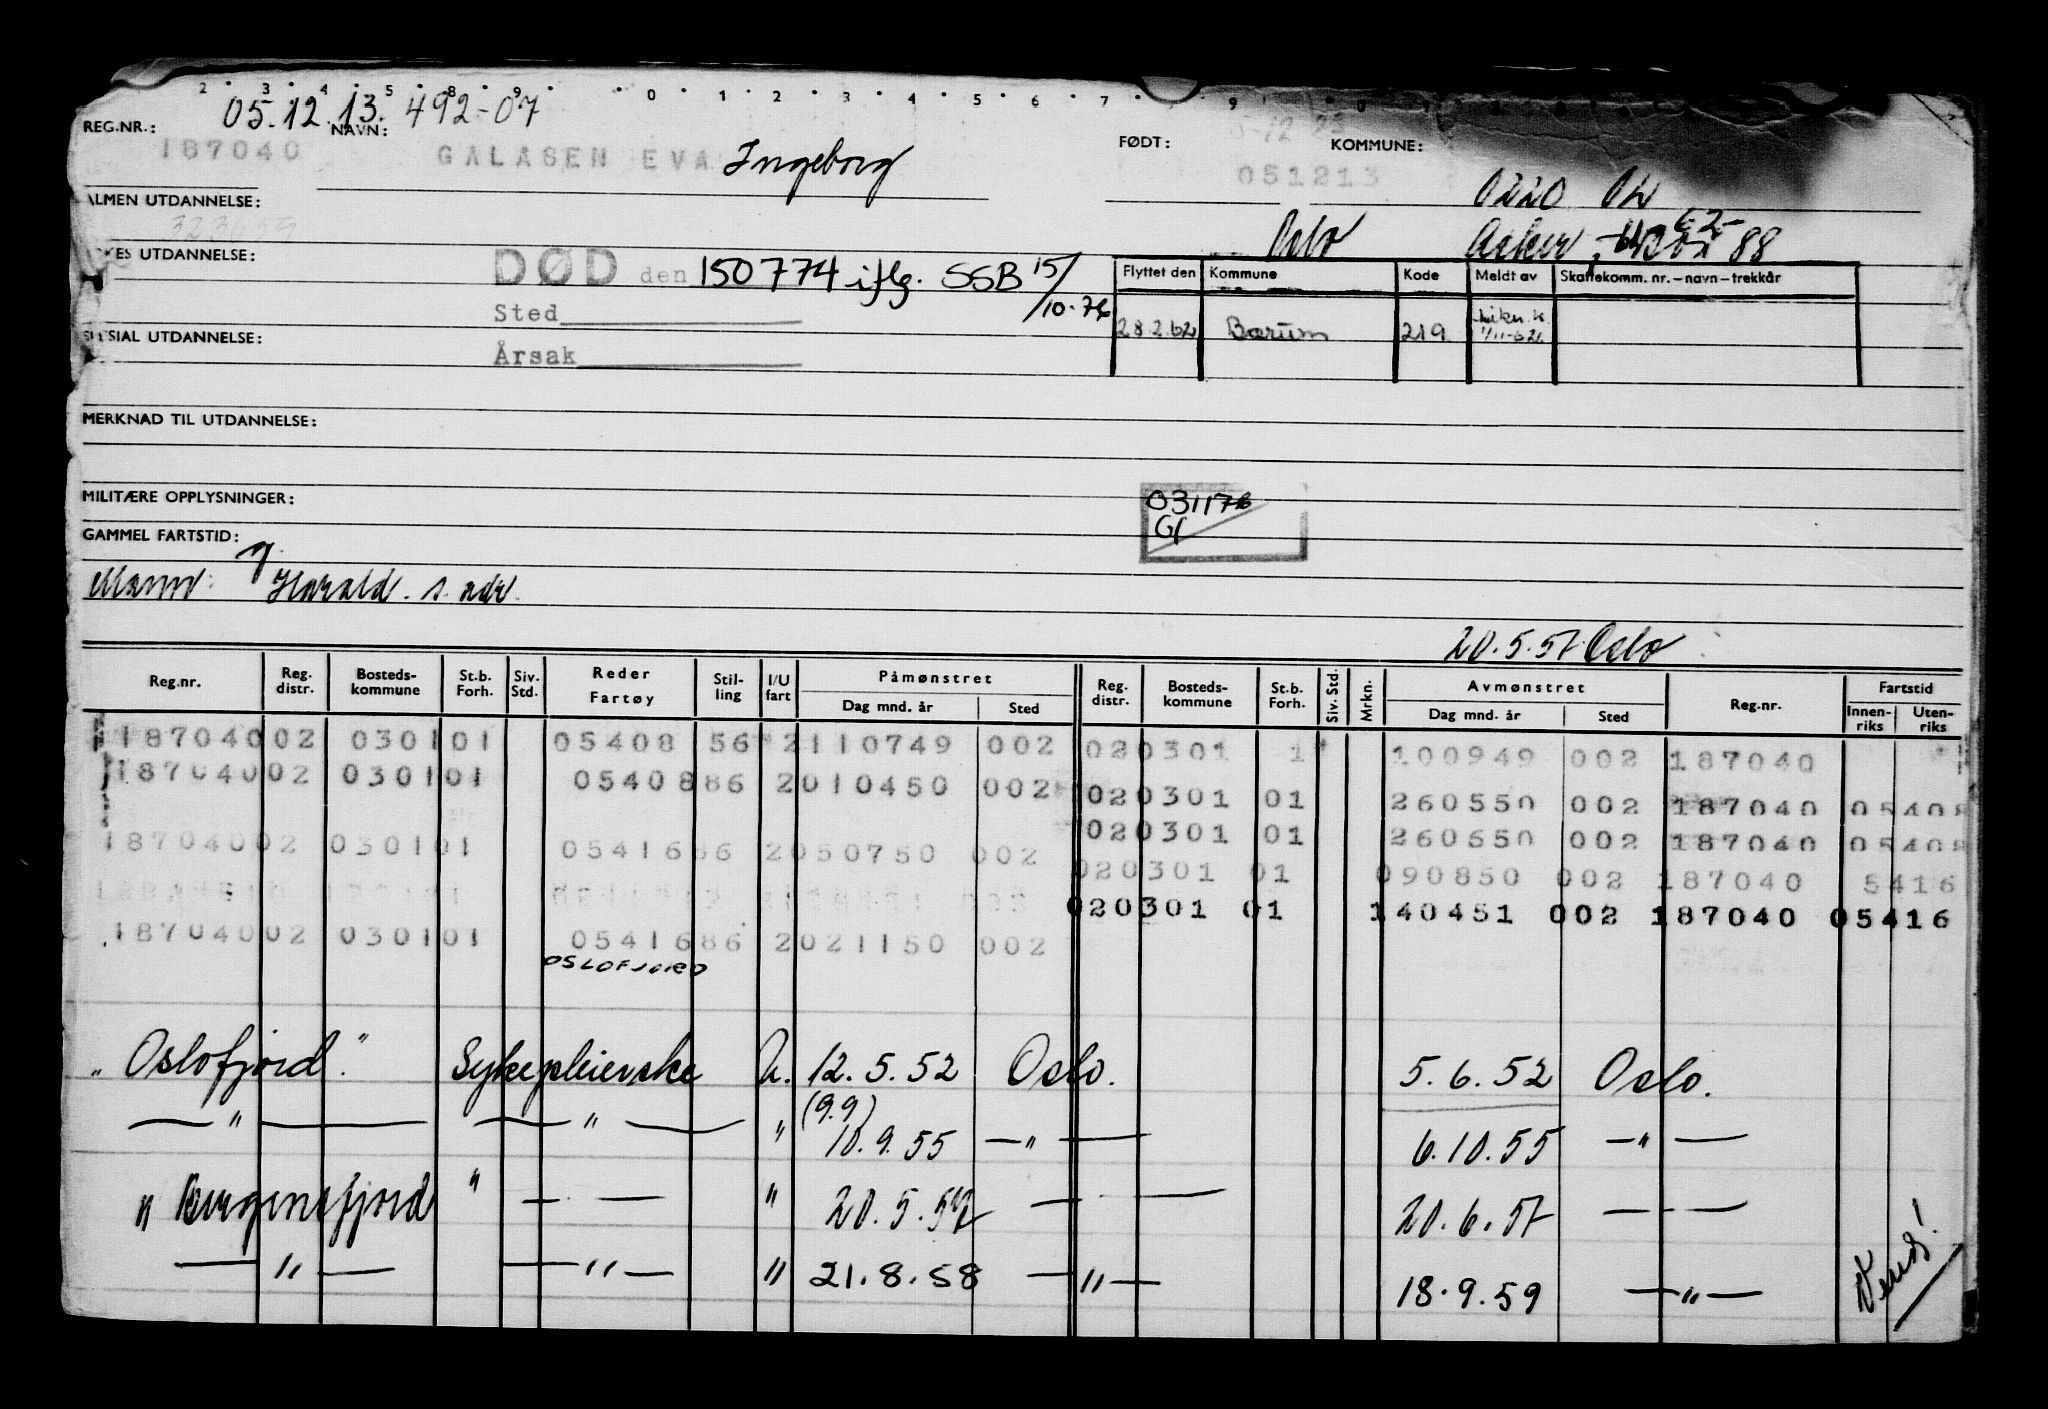 2 3 4 5 8 9 0 1 2 3 4 5 6 7 9
05.12.13. 492-07
REG.NR.: NAVN: FØDT: KOMMUNE:
187040 GALASEN EVA Ingeborg 051213
ALMEN UTDANNELSE: 0220
323655
Oslo Asker, 88
UTDANNELSE: DØD den 150774 iflg. SSB 15/10.76
Flyttet den Kommune Kode Meldt av Skattekomm. nr. – navn – trekkår
Sted
28.2.62 Bærum 219 1/11-62
SPESIAL UTDANNELSE: Årsak
MERKNAD TIL UTDANNELSE:
MILITÆRE OPPLYSNINGER: 031176
GAMMEL FARTSTID:
Mann: Harald. s. adr.
20.5.57 Oslo
Reg.nr. Reg. distr. Bosteds-kommune St.b. Forh. Siv. Std. Reder Fartøy Stil-ling I/U fart Påmønstret Dag mnd. år Sted Reg. distr. Bosteds-kommune St.b. Forh. Siv. Std. Mrkn. Avmønstret Dag mnd. år Sted Reg.nr. Fartstid Innen-riks Uten-riks
187040 02 0301 01 05408 56 2 110749 002 02 0301 1 100949 002 187040
187040 02 0301 01 05408 86 2 010450 002 02 0301 01 260550 002 187040 05408
02 0301 01 260650 002 187040 05408
187040 02 0301 01 05416 86 2 050750 002 02 0301 01 090850 002 187040 5416
02 0301 01 140451 002 187040 05416
187040 02 0301 01 05416 86 2 021150 002
OSLOFJORD
"Oslofjord." Sykepleierske U. 12.5.52 Oslo. 5.6.52 Oslo.
— " — — " — " (9.9) 10.9.55 — " — 6.10.55 — " —
" Bergensfjord " — — " 20.5.57 — — 20.6.57 — —
— " — — " — " 21.8.58 — " — 18.9.59 — " —
Vend!